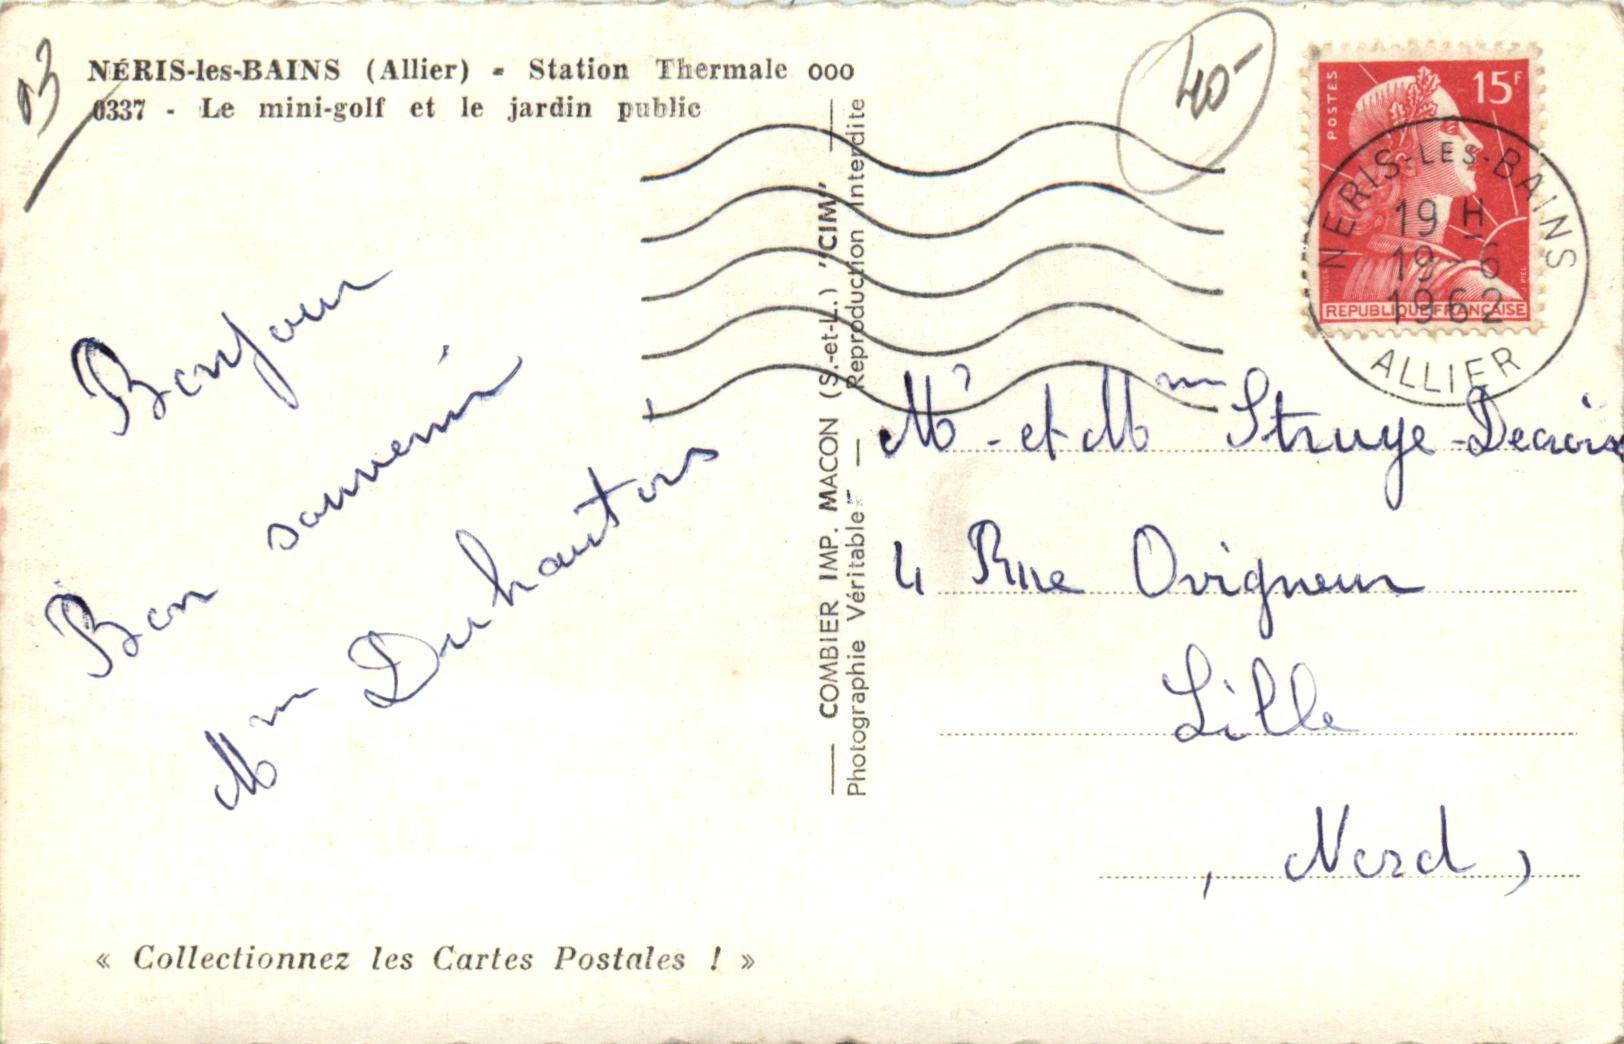 03
NÉRIS-les-BAINS (Allier) - Station Thermale ooo
0337 - Le mini-golf et le jardin public
40-
POSTES
15F
REPUBLIQUE FRANÇAISE
NERIS-LES-BAINS
19 H
19-6
1962
ALLIER
Bonjour
Bon souvenir
Mme Duhautois
COMBIER IMP. MACON (S.-et-L.) "CIM"
Photographie Véritable - Reproduction Interdite
Mr - et Mme Struye-Decroix
4 Rue Ovigneur
Lille
(Nord)
« Collectionnez les Cartes Postales ! »